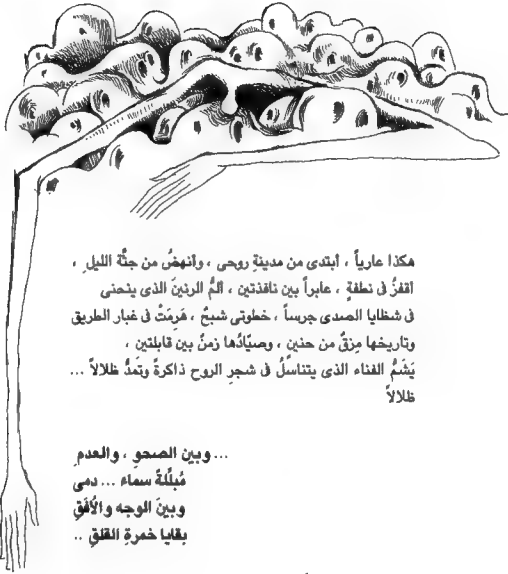 هكذا عارياً ، أبتدى من مدينةِ روحى ، وأنهضُ من جثَّة الليلِ ،
أقفزُ فى نطفةٍ ، عابراً بين نافذتين ، ألمُّ الرنينَ الذى ينحنى
فى شظايا الصدى جرساً ، خطوتى شبحٌ ، هَرِمَتْ فى غبار الطريق
وتاريخها مِزقٌ من حنينٍ ، وصيّادُها زمنٌ بين قابلتين ،
يَشَمُّ الفناء الذى يتناسلُ فى شجرِ الروح ذاكرةً وتَمدُّ ظلالاً ...
ظلالاً
... وبين الصحوِ ، والعدمِ
مُبلَّلةٌ سماء ... دمى
وبينَ الوجه والأُفَقِ
بقايا خمرةِ القلقِ ..